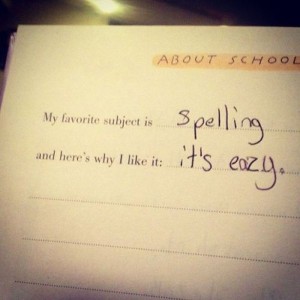 ABOUT SCHOOL
My favorite subject is spelling
and here's why I like it: it's eazy.